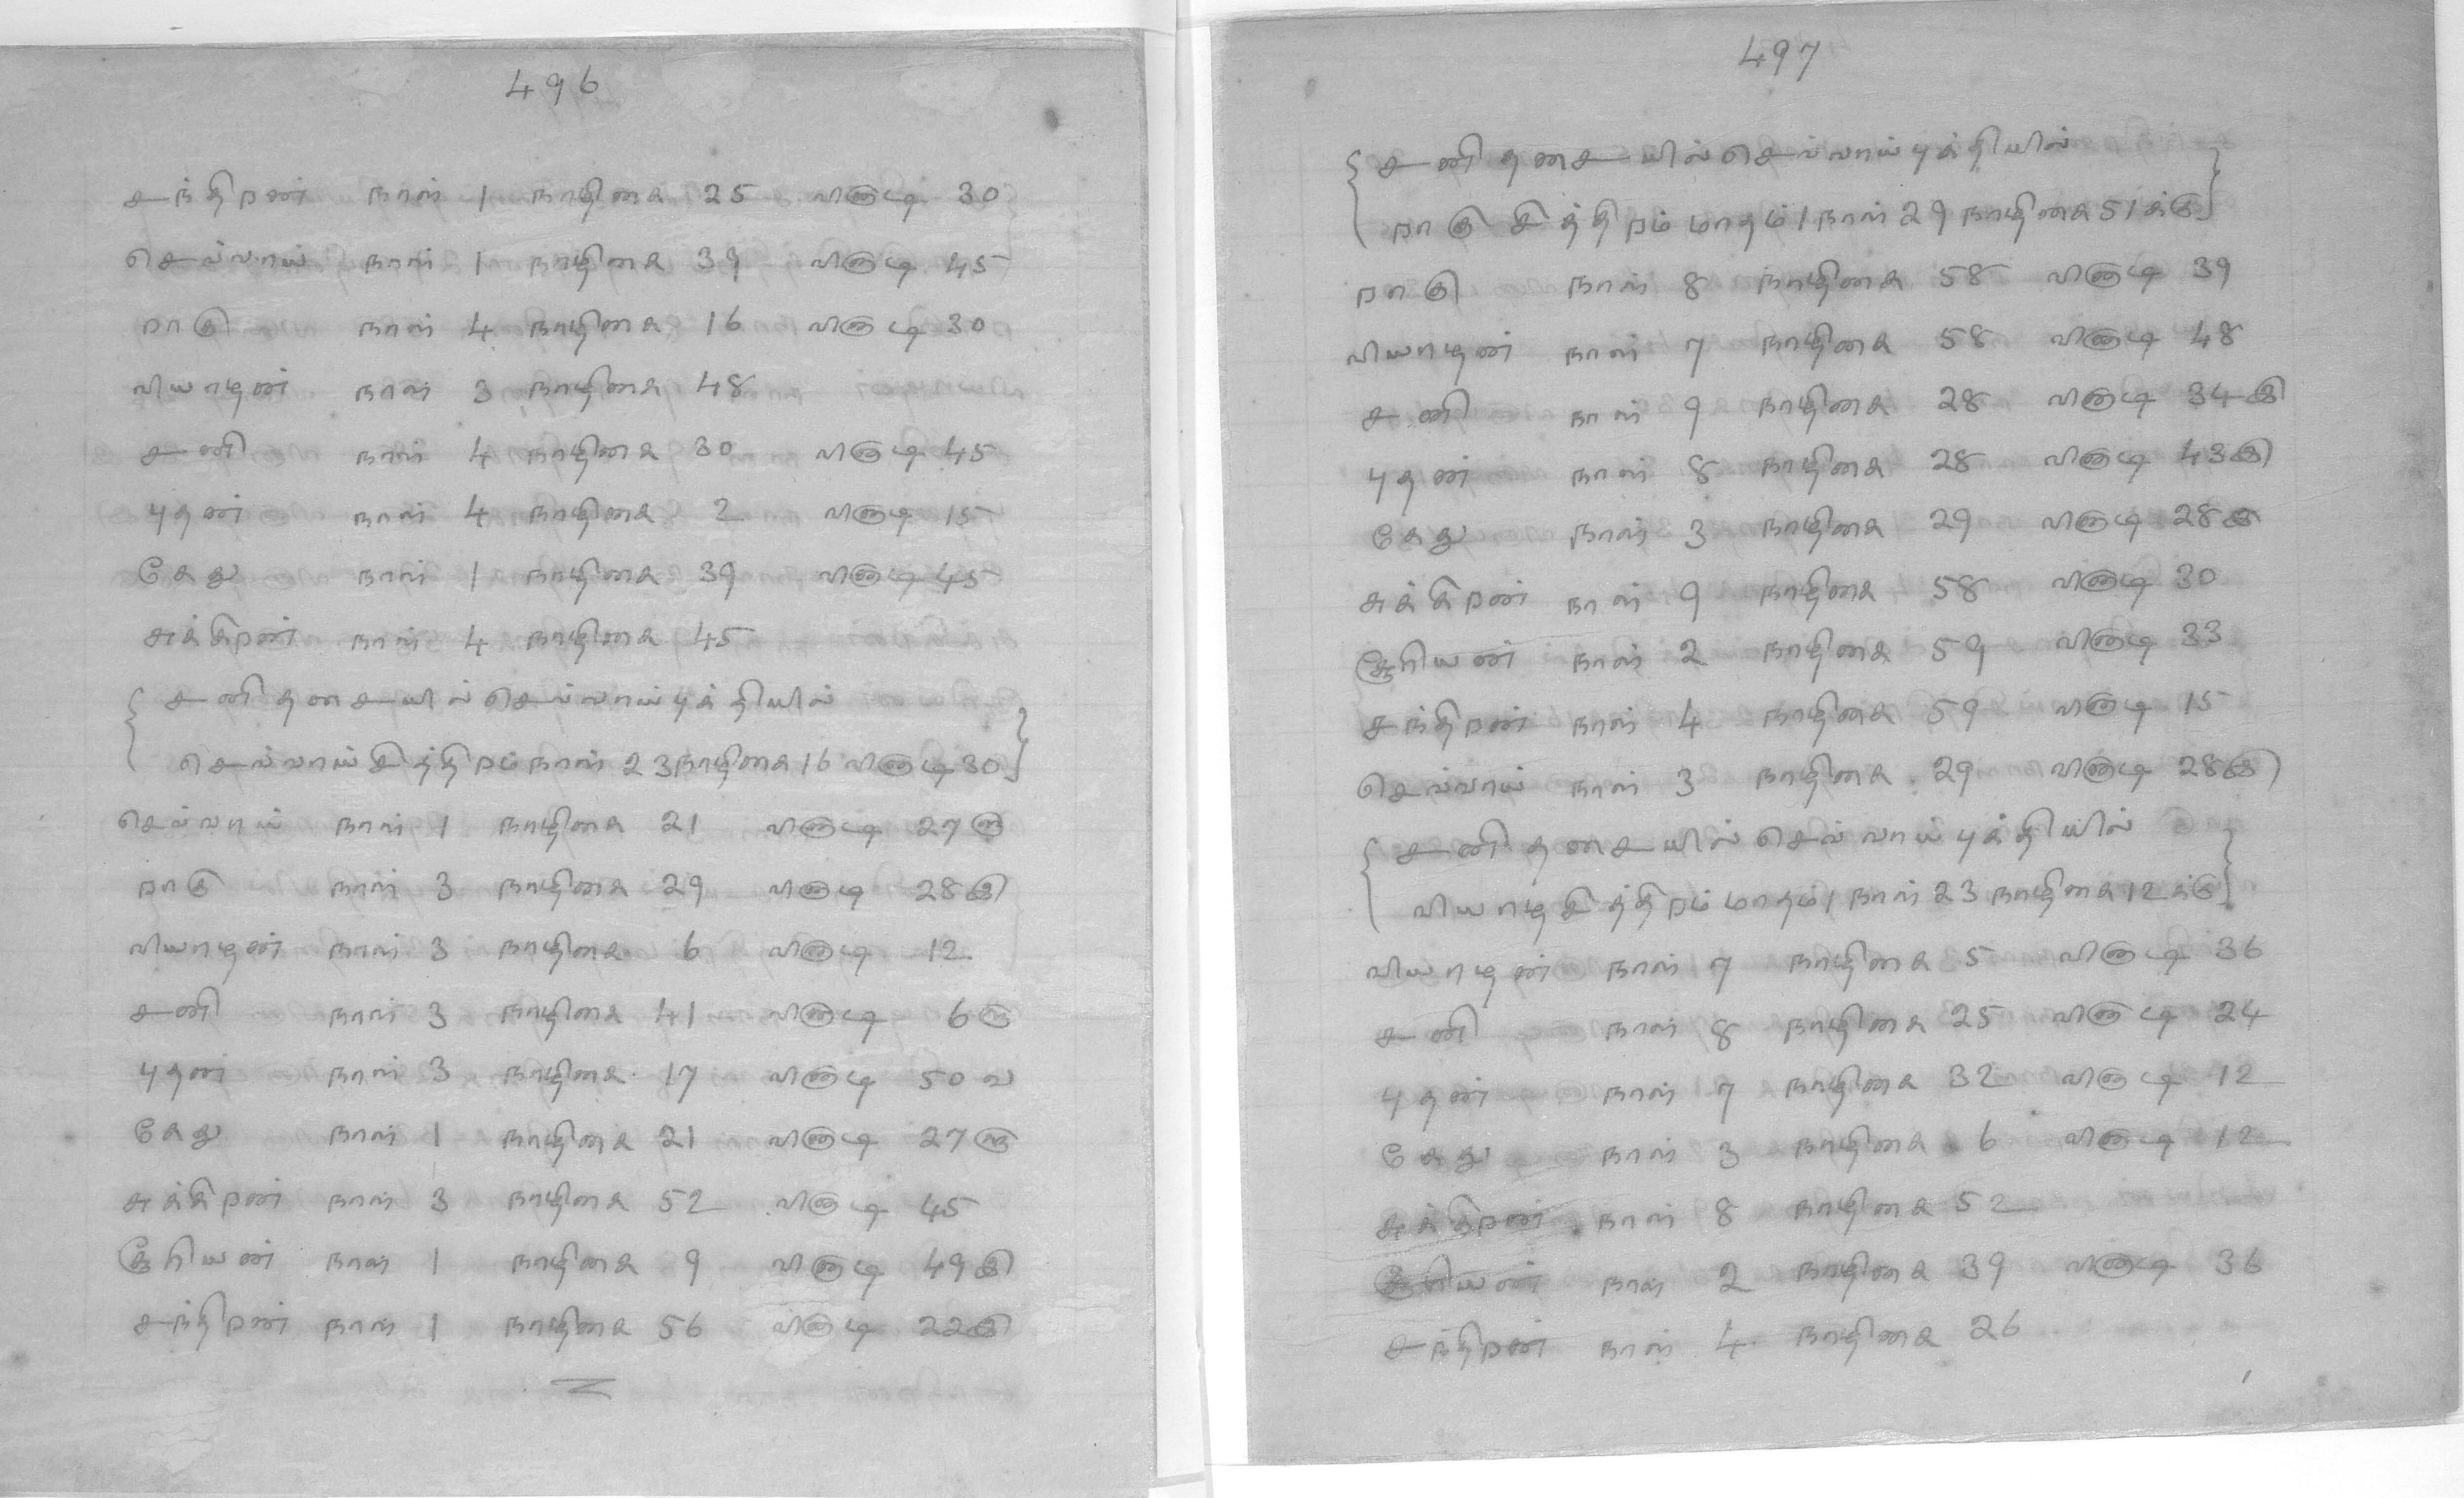 496
சந்திறன் நாள் 1 நாழிகை 25 விநாடி 30
செவ்வாய் நாள் 1 நாழிகை 39 விநாடி 45
றாகு நாள் 4 நாழிகை 16 விநாடி 30
வியாழன் நாள் 3 நாழிகை 48
சனி நாள் 4 நாழிகை 30 விநாடி 45
புதன் நாள் 4 நாழிகை 2 விநாடி 15
கேது நாள் 1 நாழிகை 39 விநாடி 45
சுக்கிறன் நாள் 4 நாழிகை 45
{ சனி தசையில் செவ்வாய் புக்தியில்
செவ்வாய் சித்திறம் நாள் 23 நாழிகை 16 விநாடி 30 }
செவ்வாய் நாள் 1 நாழிகை 21 விநாடி 27
றாகு நாள் 3 நாழிகை 29 விநாடி 28
வியாழன் நாள் 3 நாழிகை 6 விநாடி 12
சனி நாள் 3 நாழிகை 41 விநாடி 6
புதன் நாள் 3 நாழிகை 17 விநாடி 50
கேது நாள் 1 நாழிகை 21 விநாடி 27
சுக்கிறன் நாள் 3 நாழிகை 52 விநாடி 45
சூரியன் நாள் 1 நாழிகை 9 விநாடி 49
சந்திறன் நாள் 1 நாழிகை 56 விநாடி 22
497
{ சனி தசையில் செவ்வாய் புக்தியில்
றாகு சித்திறம் மாதம் 1 நாள் 29 நாழிகை 51 க்கு }
றாகு நாள் 8 நாழிகை 58 விநாடி 39
வியாழன் நாள் 7 நாழிகை 58 விநாடி 48
சனி நாள் 9 நாழிகை 28 விநாடி 34
புதன் நாள் 8 நாழிகை 28 விநாடி 43
கேது நாள் 3 நாழிகை 29 விநாடி 28
சுக்கிறன் நாள் 9 நாழிகை 58 விநாடி 30
சூரியன் நாள் 2 நாழிகை 59 விநாடி 33
சந்திறன் நாள் 4 நாழிகை 59 விநாடி 15
செவ்வாய் நாள் 3 நாழிகை 29 விநாடி 28
{ சனி தசையில் செவ்வாய் புக்தியில்
வியாழ சித்திறம் மாதம் 1 நாள் 23 நாழிகை 12 க்கு }
வியாழன் நாள் 7 நாழிகை 5 விநாடி 36
சனி நாள் 8 நாழிகை 25 விநாடி 24
புதன் நாள் 7 நாழிகை 32 விநாடி 12
கேது நாள் 3 நாழிகை 6 விநாடி 12
சுக்கிறன் நாள் 8 நாழிகை 52
சூரியன் நாள் 2 நாழிகை 39 விநாடி 36
சந்திறன் நாள் 4 நாழிகை 26